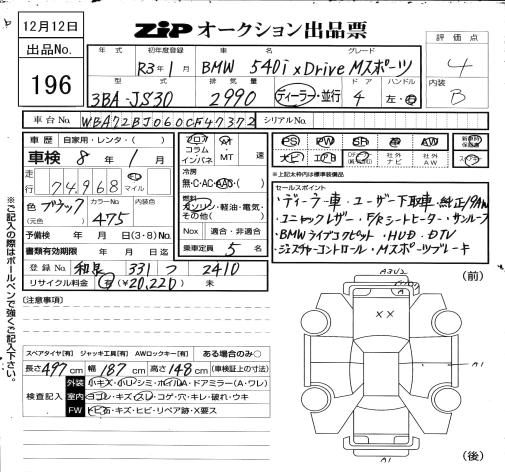 12月12日
ZIP オークション出品票
出品No.
196
評価点
4
内装
B
年式 初年度登録 車名 グレード
R3年1月 BMW 540i xDrive Mスポーツ
型式 排気量 ドア ハンドル
3BA-JS30 2990 ディーラー・並行 4 左・右
車台No. WBA72BJ060CF47372 シリアルNo.
車歴 自家用・レンタ・( )
車検 8年1月
走行 74,968 Km マイル
色 ブラック (元色) カラーNo. 475 内装色
予備検 年 月 日(3・8)No.
書類有効期限 年 月 日
登録No. 和泉 331 つ 2410
リサイクル料金 有(¥20,220) 未
フロア コラム インパネ AT MT 速
冷房 無・C・AC・AAC( )
燃料 ガソリン・軽油・電気・その他( )
Nox 適合・非適合
乗車定員 5名
PS PW SR 革 AW
ナビ エアB 社外ナビ 社外AW
*上記太枠内は標準装備
セールスポイント
・ディーラー車・ユーザー下取車・純正19AW
・コニャックレザー・F/Rシートヒーター・サンルーフ
・BMWライブコクピット・HUD・DTV
・ジェスチャーコントロール・Mスポーツブレーキ
※ご記入の際はボールペンで強くご記入下さい。
(注意事項)
スペアタイヤ[有] ジャッキ工具[有] AWロックキー[有] ある場合のみ○
長さ497cm 幅187cm 高さ148cm (車検証上の寸法)
検査記入
外装 小キズ・小ハシミ・ホイルA・ドアミラー(A・ワレ)
室内 ヨゴレ・キズ・スレ・コゲ・穴・キレ・破れ・ウキ
FW トビ石・キズ・ヒビ・リペア跡・X要ス
(前)
A3U2
A
XX
A1
A1
(後)